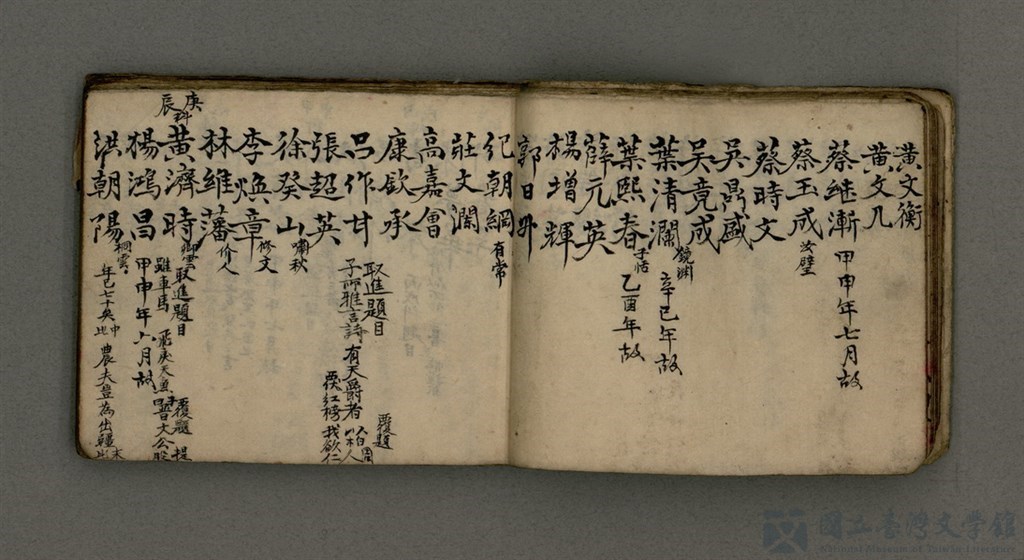 黄文衡
黄文几
蔡继漸 甲申年七月故
蔡玉成 汝璧
蔡時文
吳鬲盛
吳竞成
葉清瀾 鏡渊 辛巳年故
葉熙春 子恬 乙酉年故
薛元英
楊增輝
郭日升
紀朝綱 有常
莊文瀾
高嘉會
康欽承
呂作甘 取進題目 覆題
子所雅言詩 有天爵者
覆紅榜 我欲仁
張超英
徐癸山 嘯秋
李煥章 修文
林維藩 介人
庚辰科
黃濟時 卿雲 取進題目 覆題
雖車馬
晋文公
楊鴻昌 甲申年六月故
洪朝陽 桐雲
年已七十矣 農夫豈為出疆
國立臺灣文學館
National Museum of Taiwan Literature